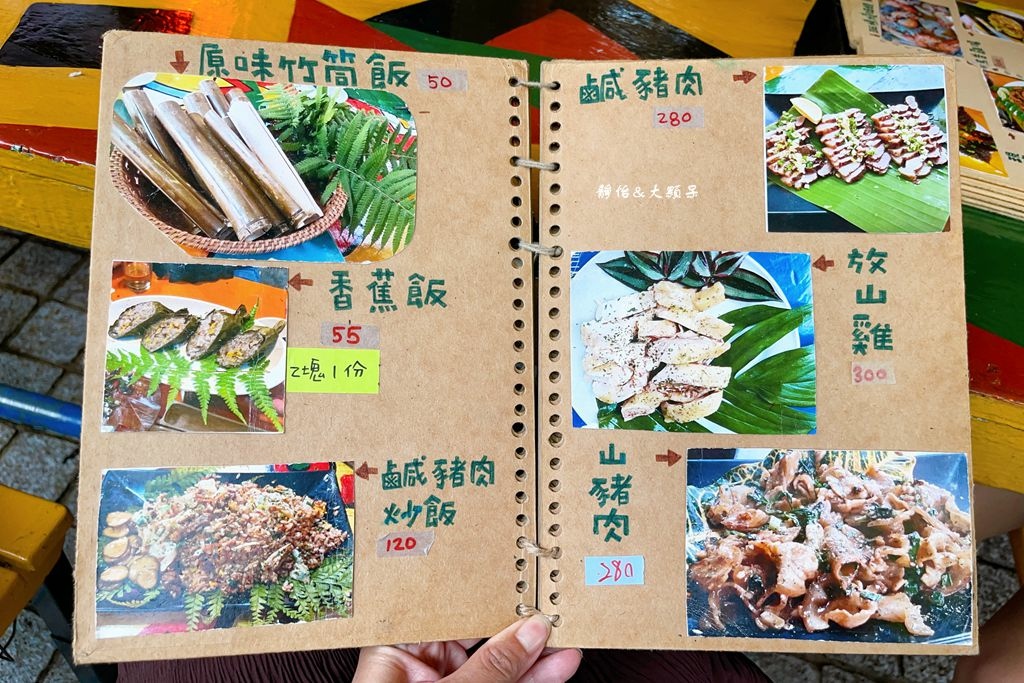 原味竹筒飯
50
香蕉飯
55
2塊1份
鹹豬肉
炒飯
120
鹹豬肉
280
靜怡&大顆呆
放山雞
300
山豬肉
280